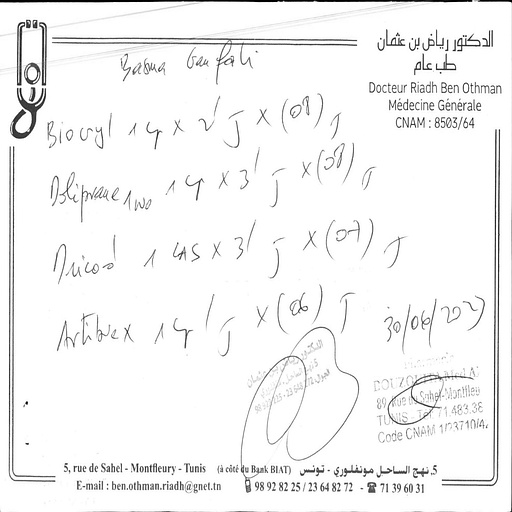 الدكتور رياض بن عثمان
طب عام
Docteur Riadh Ben Othman
Médecine Générale
CNAM : 8503/64
Basma
Biocryl 1 cp x 2 / J x (08) J
Doliprane 1 cp x 3 / J x (08) J
1 CAS x 3 / J x (07) J
Artibex 1 cp / J x (06) J
30/06/2027
Sahel-Montfleu
TUNIS - Tel 71.483.38
Code CNAM 1/23710/4
5, rue de Sahel - Montfleury - Tunis (à côté du Bank BIAT) 5, نهج الساحل مونفلوري - تونس
E-mail : ben.othman.riadh@gnet.tn 98 92 82 25 / 23 64 82 72 - 71 39 60 31